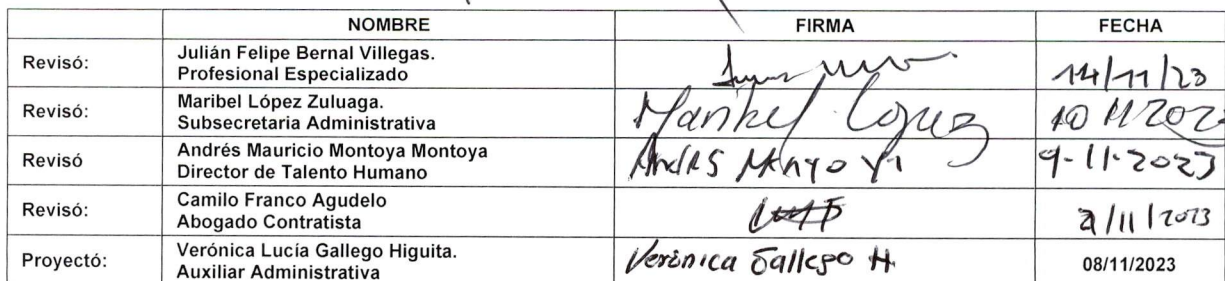 NOMBRE FIRMA FECHA
Revisó: Julián Felipe Bernal Villegas.
Profesional Especializado 14/11/23
Revisó: Maribel López Zuluaga. Maribel López
Subsecretaria Administrativa 10 11 202
Revisó Andrés Mauricio Montoya Montoya
Director de Talento Humano 9-11-2023
Revisó: Camilo Franco Agudelo
Abogado Contratista /11/2023
Proyectó: Verónica Lucía Gallego Higuita. Verónica Gallego H.
Auxiliar Administrativa 08/11/2023